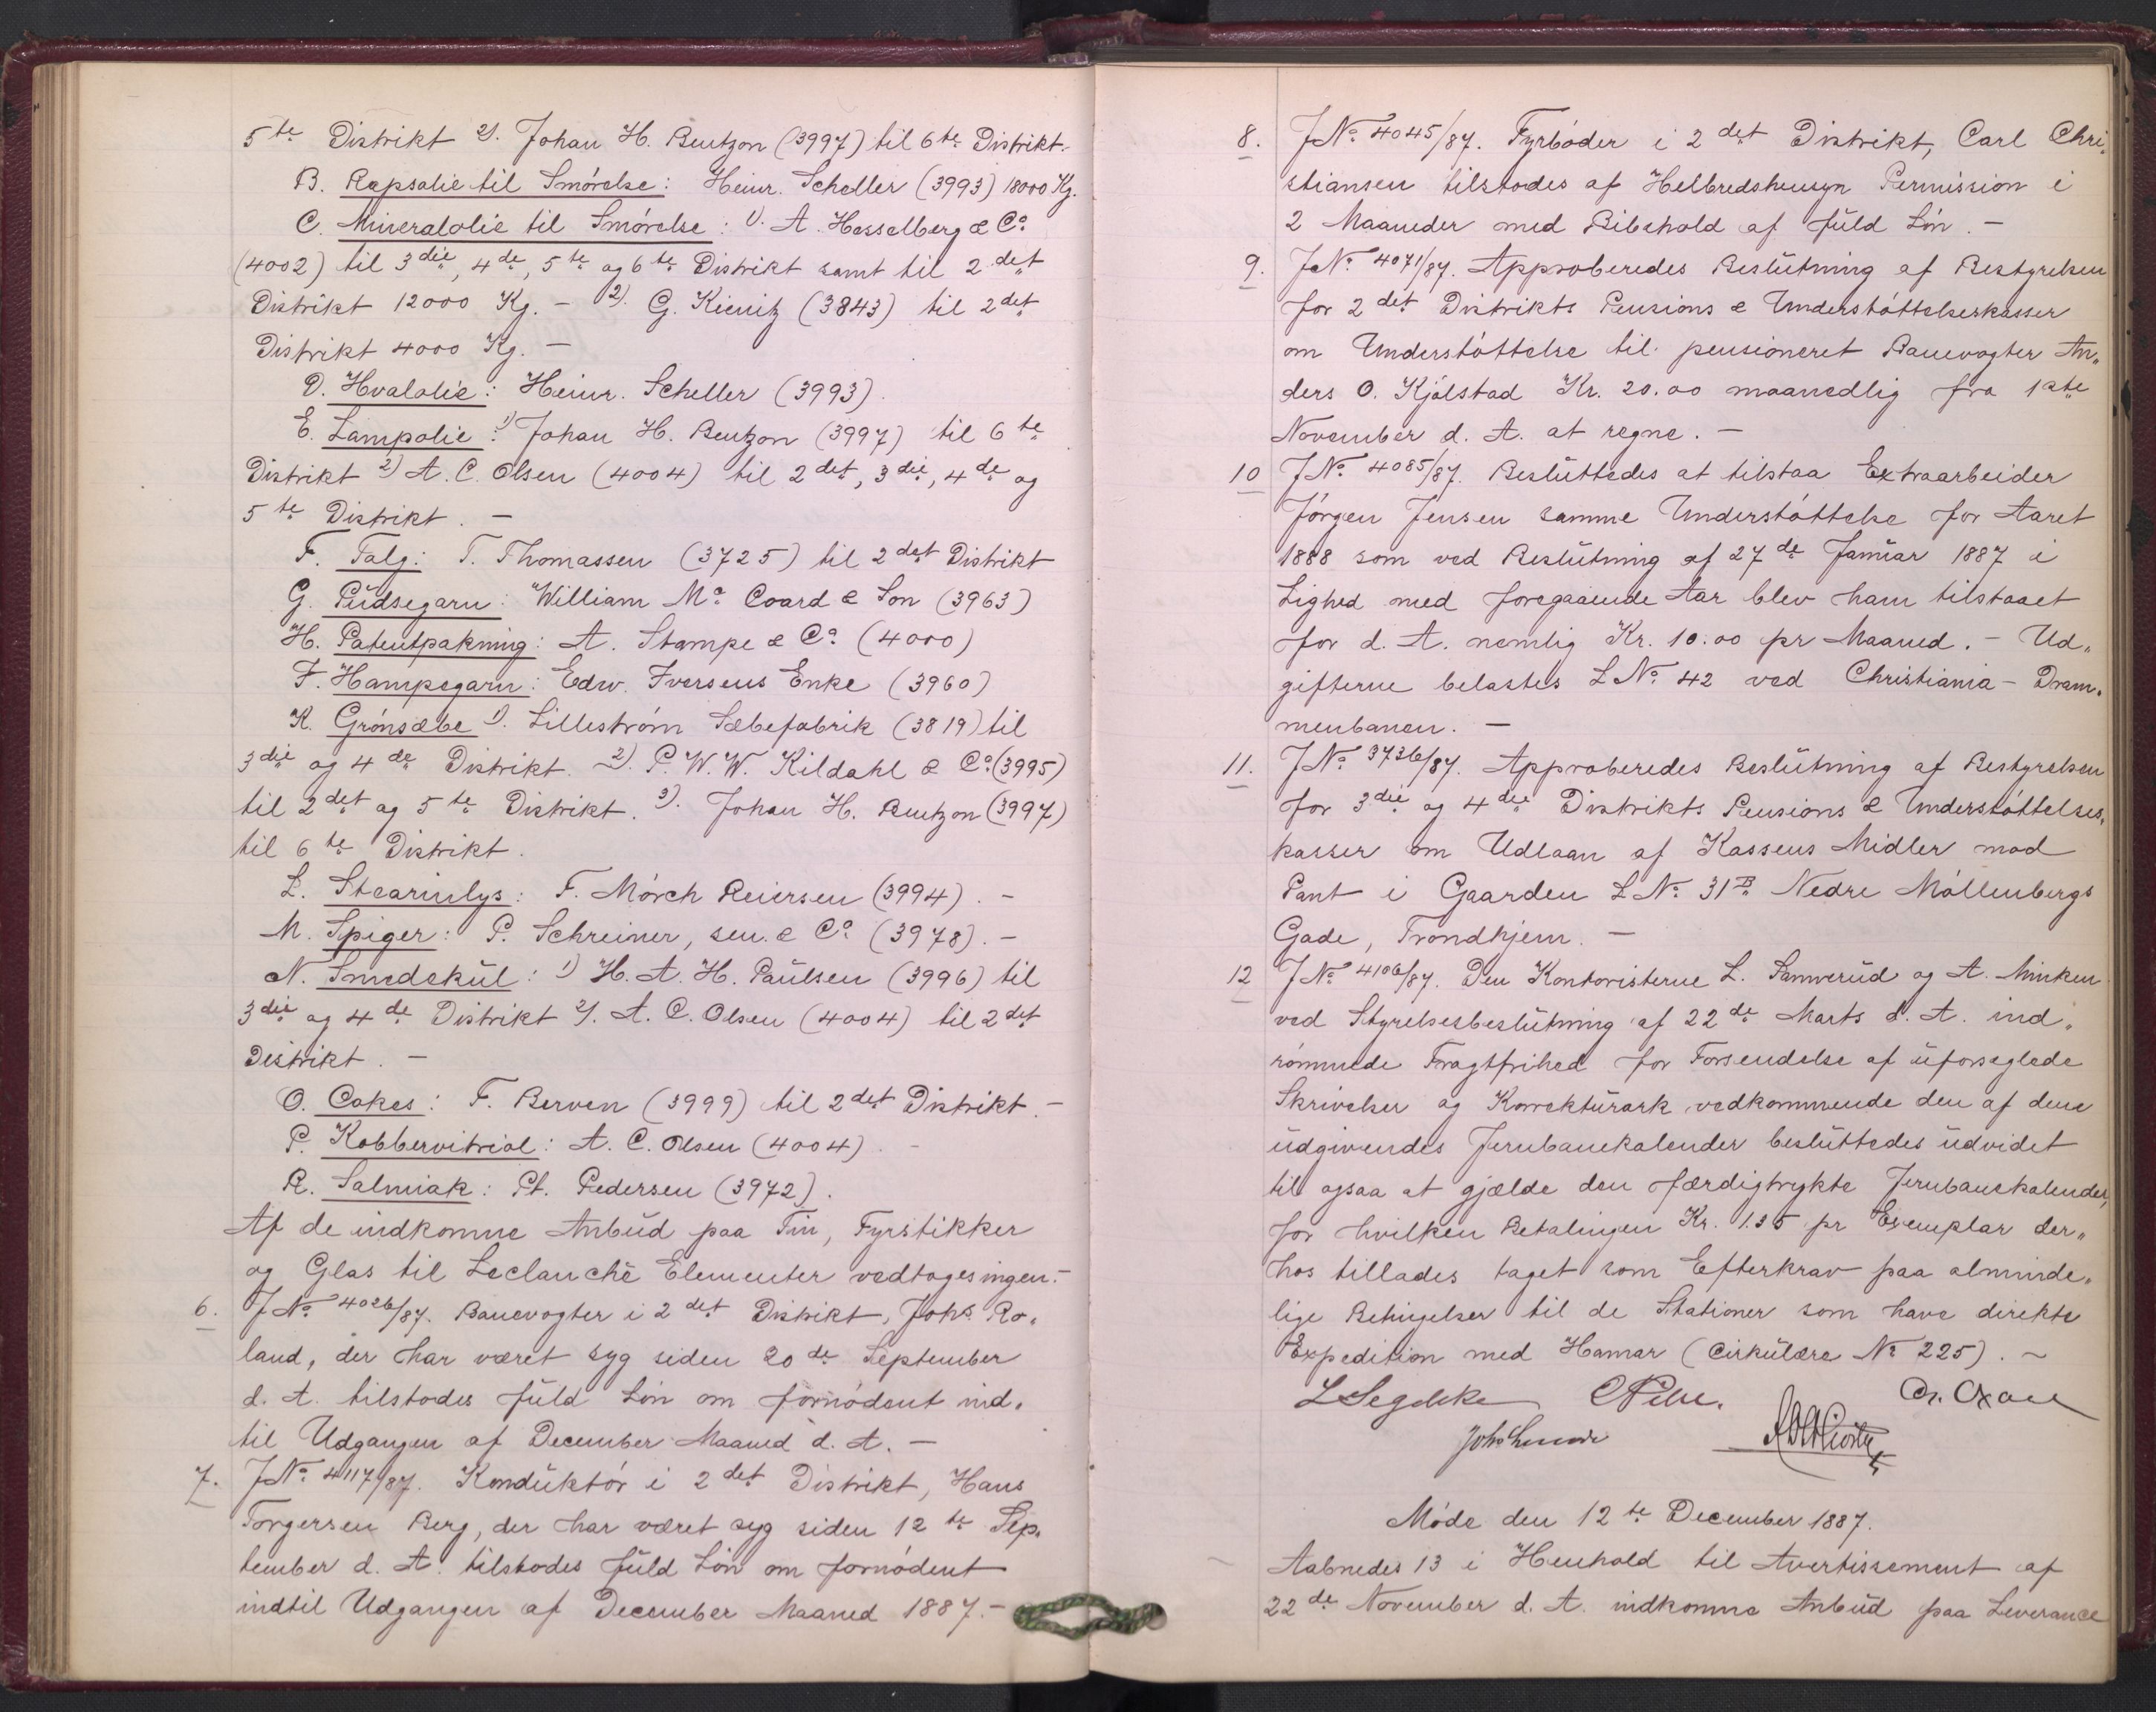 5te Distrikt 2). Johan H. Bentzon (3997) til 6te Distrikt.
B. Rapsolie til Smörelse: Heinr. Scheller (3993) 18000 Kg.
C. Mineralolie til Smörelse: 1). A. Hesselberg & Co
(4002) til 3die, 4de, 5te og 6te Distrikt samt til 2det
Distrikt 12000 Kg. - 2). G. Kienitz (3843) til 2det
Distrikt 4000 Kg. -
D. Hvalolie: Heinr. Scheller (3993).
E. Lampolie: 1) Johan H. Bentzon (3997) til 6te
Distrikt 2) A. C. Olsen (4004) til 2det, 3die, 4de og
5te Distrikt. -
F. Talg: T. Thomassen (3725) til 2det Distrikt
G. Pudsegarn: William Mc Coard & Son (3963)
H. Patentpakning: A. Stampe & Co (4000)
I. Hampegarn: Edw. Iversens Enke (3960)
K. Grönsæbe 1). Lilleström Sæbefabrik (3819) til
3die og 4de Distrikt. 2). P. W. W. Kildahl & Co (3995)
til 2det og 5te Distrikt. 3). Johan H. Bentzon (3997)
til 6te Distrikt.
L. Stearinlys: F. Mörch Reiersen (3994). -
M. Spiger: P. Schreiner, sen. & Co (3978). -
N. Smedekul: 1) H. A. H. Paulsen (3996) til
3die og 4de Distrikt 2). A. C. Olsen (4004) til 2det
Distrikt. -
O. Cokes: F. Berven (3999) til 2det Distrikt. -
P. Kobbervitriol: A. C. Olsen (4004). -
R. Salmiak: Pt. Pedersen (3972).
Af de indkomne Anbud paa Tin, Fyrstikker
og Glas til Leclanchè Elementer vedtoges ingen. -
6. JNo 4026/87. Banevogter i 2det Distrikt, Johs Ro„
land, der har været syg siden 20de September
d. A. tilstodes fuld Lön om fornödent ind„
til Udgangen af December Maaned d. A. -
7. JNo 4117/87. Konduktör i 2det Distrikt, Hans
Torgersen Berg, der har været syg siden 12te Sep„
tember d. A. tilstodes fuld Lön om fornödent
indtil Udgangen af December Maaned 1887. -
8. JNo 4045/87. Fyrböder i 2det Distrikt, Carl Chri„
stiansen tilstodes af Helbredshensyn Permission i
2 Maaneder med Bibehold af fuld Lön. -
9. JNo 4071/87. Approberedes Beslutning af Bestyrelsen
for 2det Distrikts Pensions & Understöttelseskasser
om Understöttelse til pensioneret Banevogter An„
ders O. Kjölstad Kr. 20.00 maanedlig fra 1ste
November d. A. at regne. -
10 JNo 4085/87. Besluttedes at tilstaa Extraarbeider
Jörgen Jensen samme Understöttelse for Aaret
1888 som ved Beslutning af 27de Januar 1887 i
Lighed med foregaaende Aar blev ham tilstaaet
for d. A. nemlig Kr. 10.00 pr Maaned. - Ud„
gifterne belastes LNo 42 ved Christiania - Dram„
menbanen. -
11. JNo 3736/87. Approberedes Beslutning af Bestyrelsen
for 3die og 4de Distrikts Pensions & Understöttelses„
kasser om Udlaan af Kassens Midler mod
Pant i Gaarden LNo 31B Nedre Möllenbergs
Gade, Trondhjem. -
12 JNo 4106/87. Den Kontoristerne L. Samverud og A. Minken
ved Styrelsesbeslutning af 22de Marts d. A. ind„
römmede Fragtfrihed for Forsendelse af uforseglede
Skrivelser og Korrekturark vedkommende den af dem
udgivendes Jernbanekalender besluttedes udvidet
til ogsaa at gjælde den færdigtrykte Jernbanekalender,
for hvilken Betalingen Kr. 1.35 pr Exemplar der„
hos tillades taget som Efterkrav paa alminde„
lige Betingelser til de Stationer som have direkte
Expedition med Hamar (Cirkulære No 225). -
L Segelcke C Pihl.
Møde den 12te December 1887.
Aabnedes 13 i Henhold til Avertissement af
22de November d. A. indkomne Anbud paa Leverance